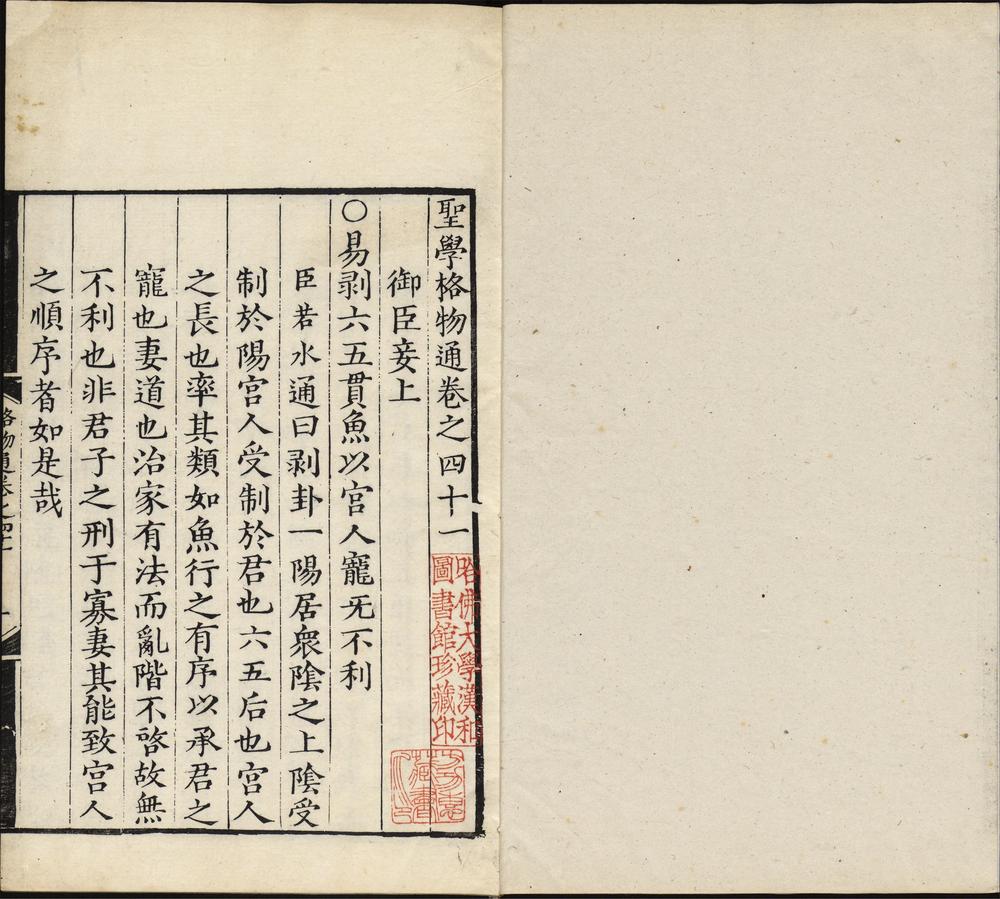 聖學格物通卷之四十一
御臣妾上
○易剥六五貫魚以宫人寵无不利
臣若水通曰剥卦一陽居衆陰之上陰受
制於陽宫人受制於君也六五后也宫人
之長也率其類如魚行之有序以承君之
寵也妻道也治家有法而亂階不啓故無
不利也非君子之刑于寡妻其能致宫人
之順序者如是哉
格物通卷之四十一
一
哈佛大學漢和
圖書館珍藏印